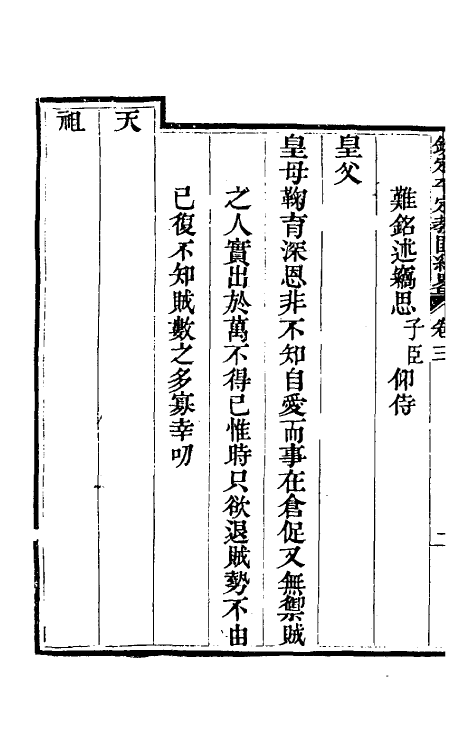 欽定平定教匪紀略 卷三 二
難銘述竊思子臣仰侍
皇父
皇母鞠育深恩非不知自愛而事在倉促又無禦賊
之人實出於萬不得已惟時只欲退賊勢不由
己復不知賊數之多寡幸叨
天
祖